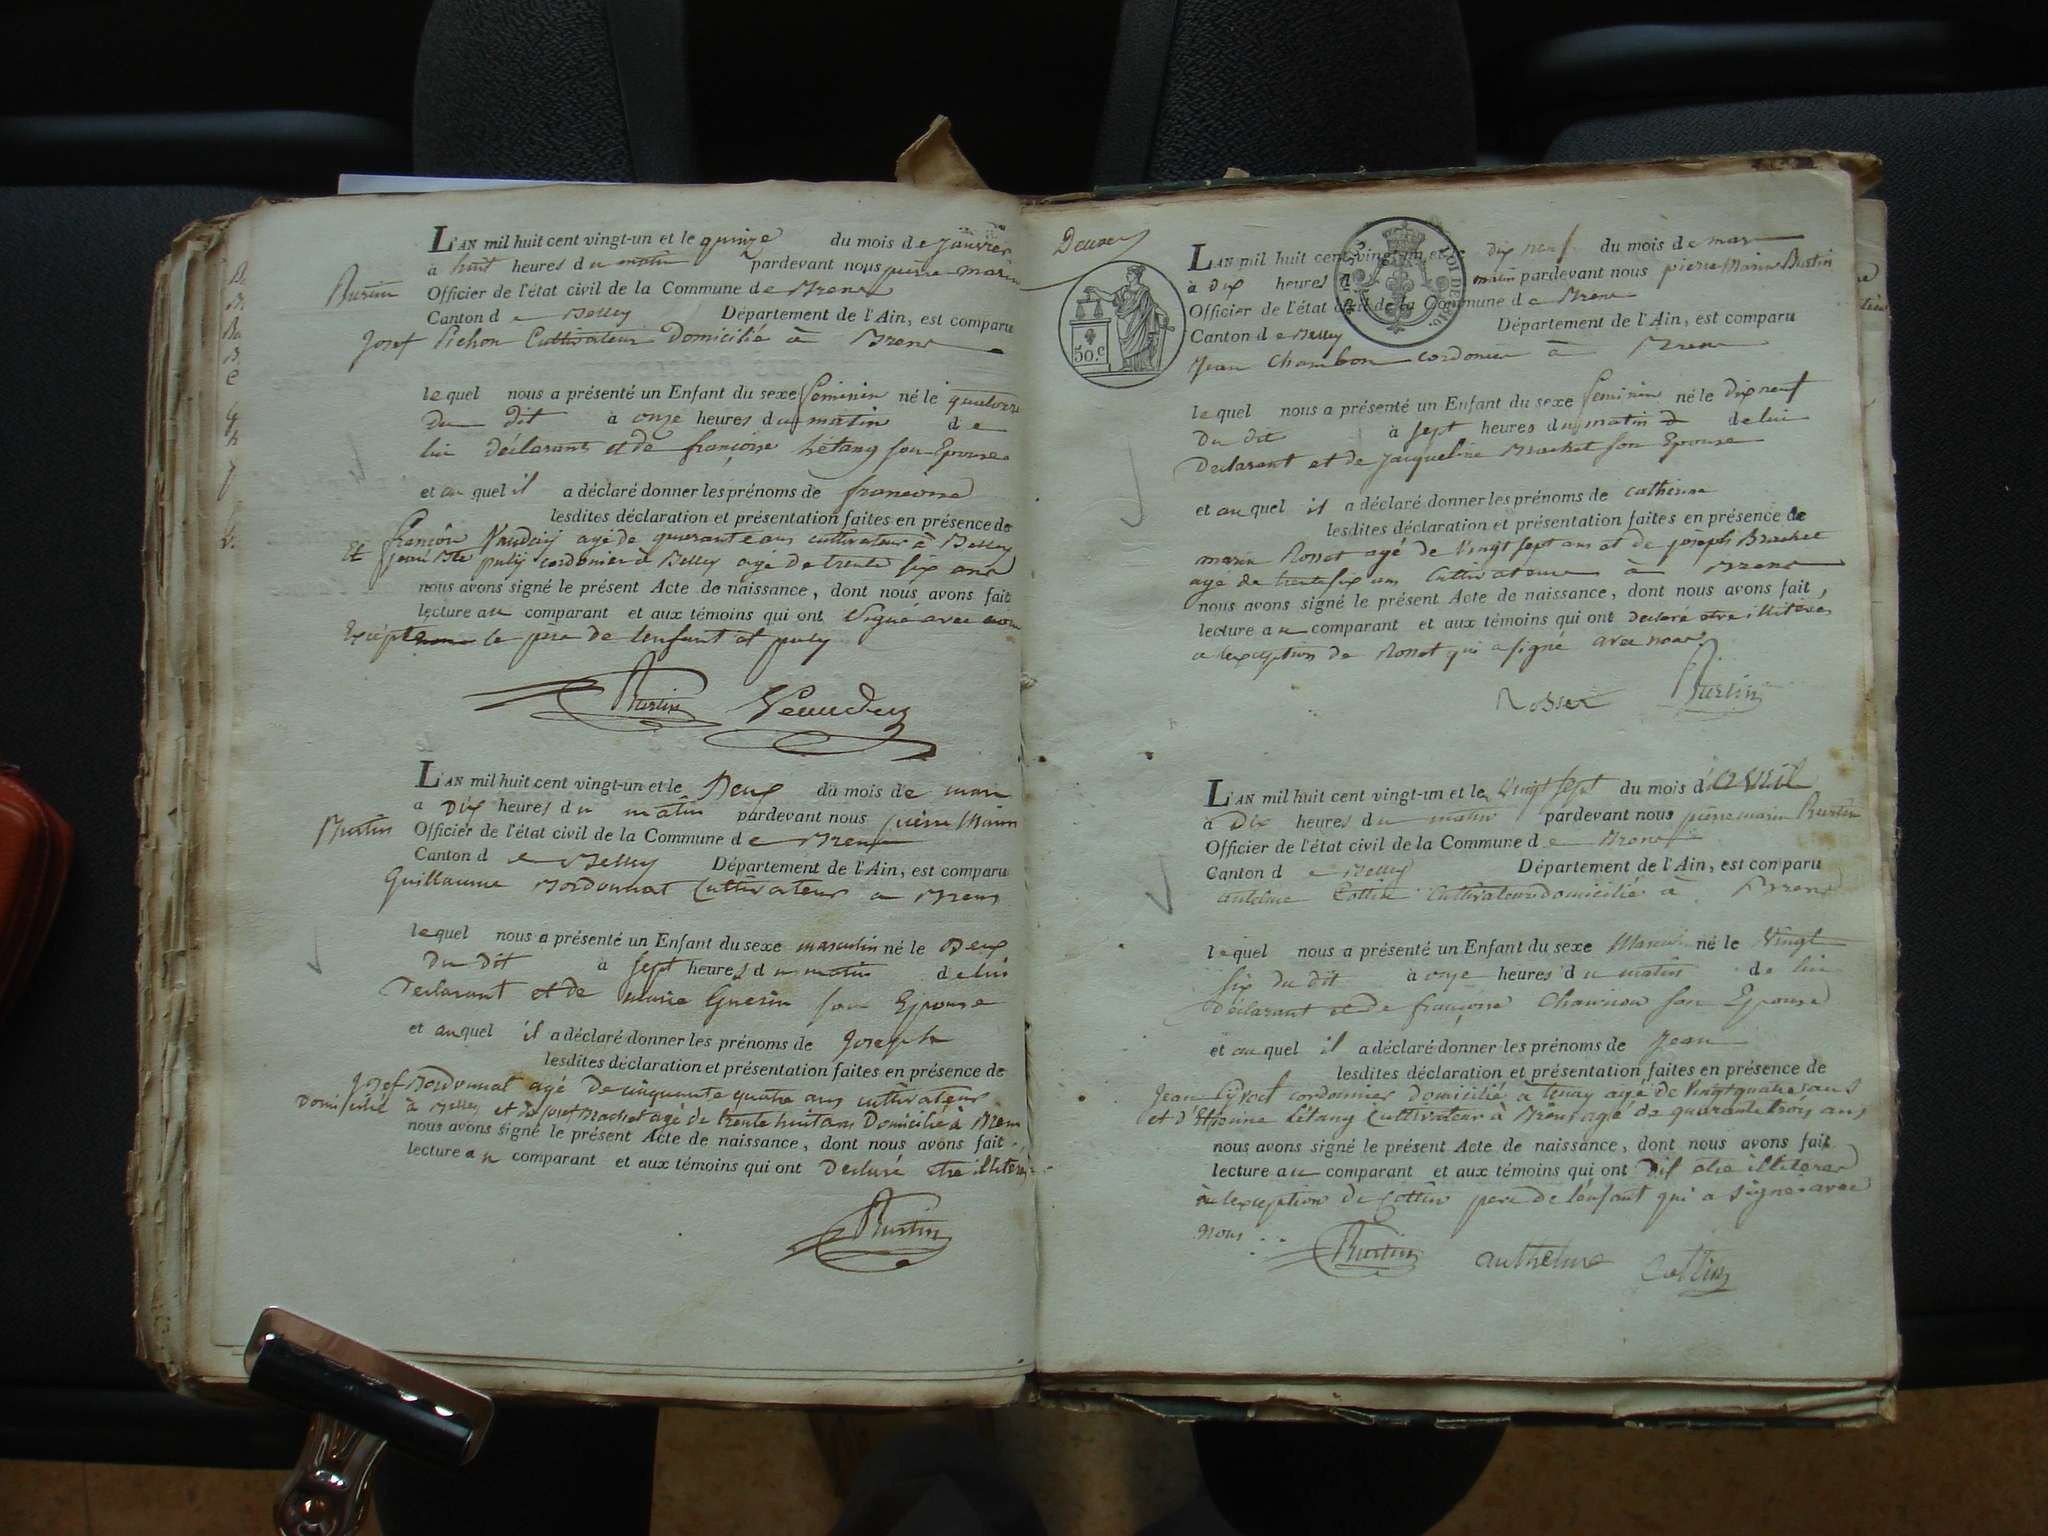 L'AN mil huit cent vingt-un et le quinze du mois de janvier
à huit heures du matin pardevant nous pierre marin
Burtin Officier de l'état civil de la Commune de Brens
Canton de Belley Département de l'Ain, est comparu
Josef Pichon Cultivateur Domicilié à Brens
lequel nous a présenté un Enfant du sexe feminin né le quatorze
Du dit à onze heures du matin de
lui déclarant et de françoise Létang son Epouse
et au quel il a déclaré donner les prénoms de francoise
lesdites déclaration et présentation faites en présence de
françois agé de quarante ans cultivateur à Belley
Et jean Bte puly cordonier à Belley agé de trente six ans
nous avons signé le présent Acte de naissance, dont nous avons fait
lecture au comparant et aux témoins qui ont signé avec nous
Excepté le père de lenfant et puly
Burtin
L'AN mil huit cent vingt-un et le Deux du mois de mars
à Dix heures du matin pardevant nous pierre Marin
Burtin Officier de l'état civil de la Commune de Brens
Canton de Belley Département de l'Ain, est comparu
Guillaume Bordonnat Cultivateur a Brens
lequel nous a présenté un Enfant du sexe masculin né le Deux
Du dit à sept heures du matin de lui
Declarant et de marie Guerin son Epouse
et au quel il a déclaré donner les prénoms de joseph
lesdites déclaration et présentation faites en présence de
Josef Bordonnat agé De cinquante quatre ans cultivateur
Domicilié à Belley et de josef Brachet agé de trente huit ans Domicilié à Brens
nous avons signé le présent Acte de naissance, dont nous avons fait
lecture au comparant et aux témoins qui ont Declaré etre illiteres
Burtin
Deuxes
50.c
LOI DE 1816.
L'AN mil huit cent vingt-un et le dix neuf du mois de mars
à dix heures du matin pardevant nous pierre Marin Burtin
Officier de l'état civil de la Commune de Brens
Canton de Belley Département de l'Ain, est comparu
Jean Chambon cordonier à Brens
lequel nous a présenté un Enfant du sexe feminin né le dix neuf
Du dit à sept heures du matin de lui
Declarant et de jacqueline Brachet son Epouse
et au quel il a déclaré donner les prénoms de catherine
lesdites déclaration et présentation faites en présence de
marin Rosset agé de vingt sept ans et de joseph Brachet
agé de trente six ans Cultivateurs à Brens
nous avons signé le présent Acte de naissance, dont nous avons fait
lecture au comparant et aux témoins qui ont declaré etre illiteres
a lexception de Rosset qui a signé avec nous
Rosset Burtin
L'AN mil huit cent vingt-un et le Vingt sept du mois d'avril
à Dix heures du matin pardevant nous pierre marin Burtin
Officier de l'état civil de la Commune de Brens
Canton de Belley Département de l'Ain, est comparu
antelme Cottin Cultivateur Domicilié à Brens
lequel nous a présenté un Enfant du sexe Mascu né le Vingt
six du dit à onze heures du matin de lui
Déclarant et de françoise son Epouse
et au quel il a déclaré donner les prénoms de Jean
lesdites déclaration et présentation faites en présence de
Jean cordonnier domicilié à tenay agé de Vingt quatre ans
et d'Etienne Létang Cultivateur à Brens agé de quarante trois ans
nous avons signé le présent Acte de naissance, dont nous avons fait
lecture au comparant et aux témoins qui ont dit etre illiteres
à lexception de Cottin pere de lenfant qui a signé avec
nous
Burtin anthelme Cottin